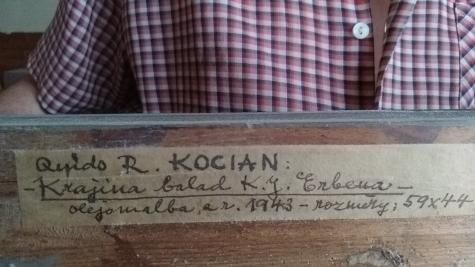 Quido R. KOCIAN:
- Krajina balad K. J. Erbena -
olejomalba, a r. 1943 - rozměry; 59x44